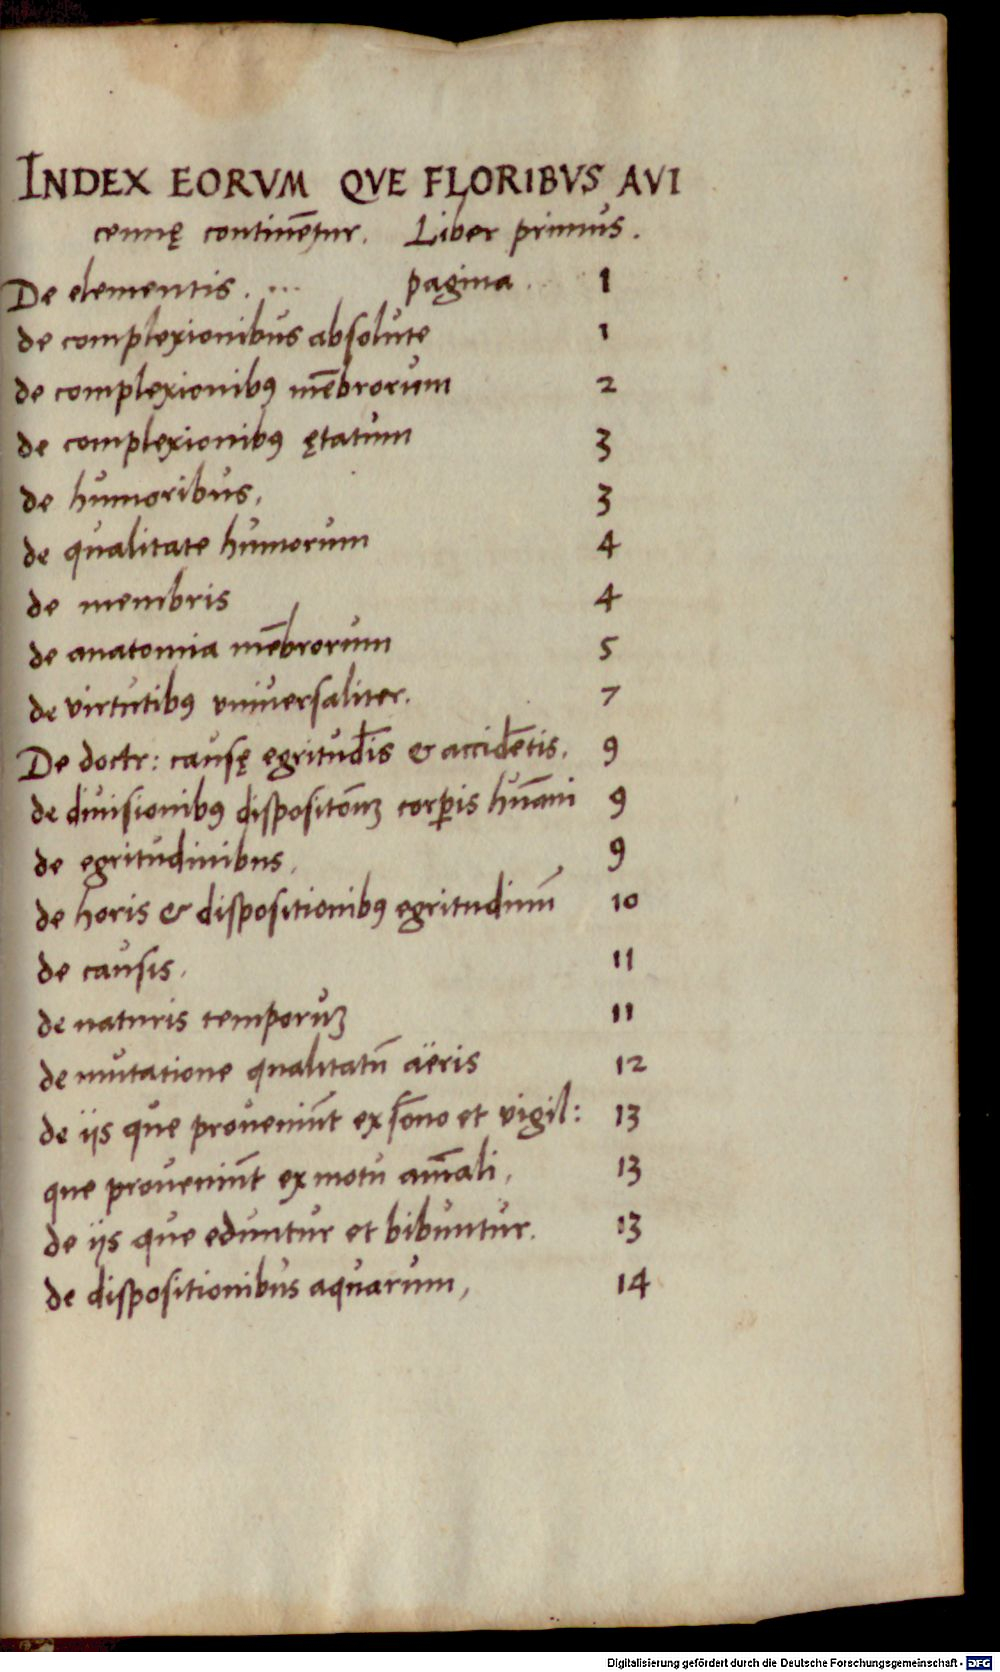 INDEX EORVM QVE FLORIBVS AVI
cennę continēt̄ur. Liber primus.
De elementis. ... pagina. 1
de complexionibus absolute 1
de complexionibꝰ mēbrorum 2
de complexionibꝰ ętatum 3
de humoribus, 3
de qualitate humorum 4
de membris 4
de anatomia mēbrorum 5
de virtutibꝰ vniuersaliter. 7
De doctr: causę egritud̄is & accidētis. 9
de diuisionibꝰ dispositōnꝫ corꝑis hūani 9
de egritudinibus. 9
de horis & dispositionibꝰ egritudinū 10
de causis. 11
de naturis temporuꝫ 11
de mutatione qualitatū aëris 12
de ijs que proueniūt ex sōno et vigil: 13
que proueniūt ex motu aīali, 13
de ijs que eduntur et bibuntur. 13
de dispositionibus aquarum, 14
Digitalisierung gefördert durch die Deutsche Forschungsgemeinschaft - DFG